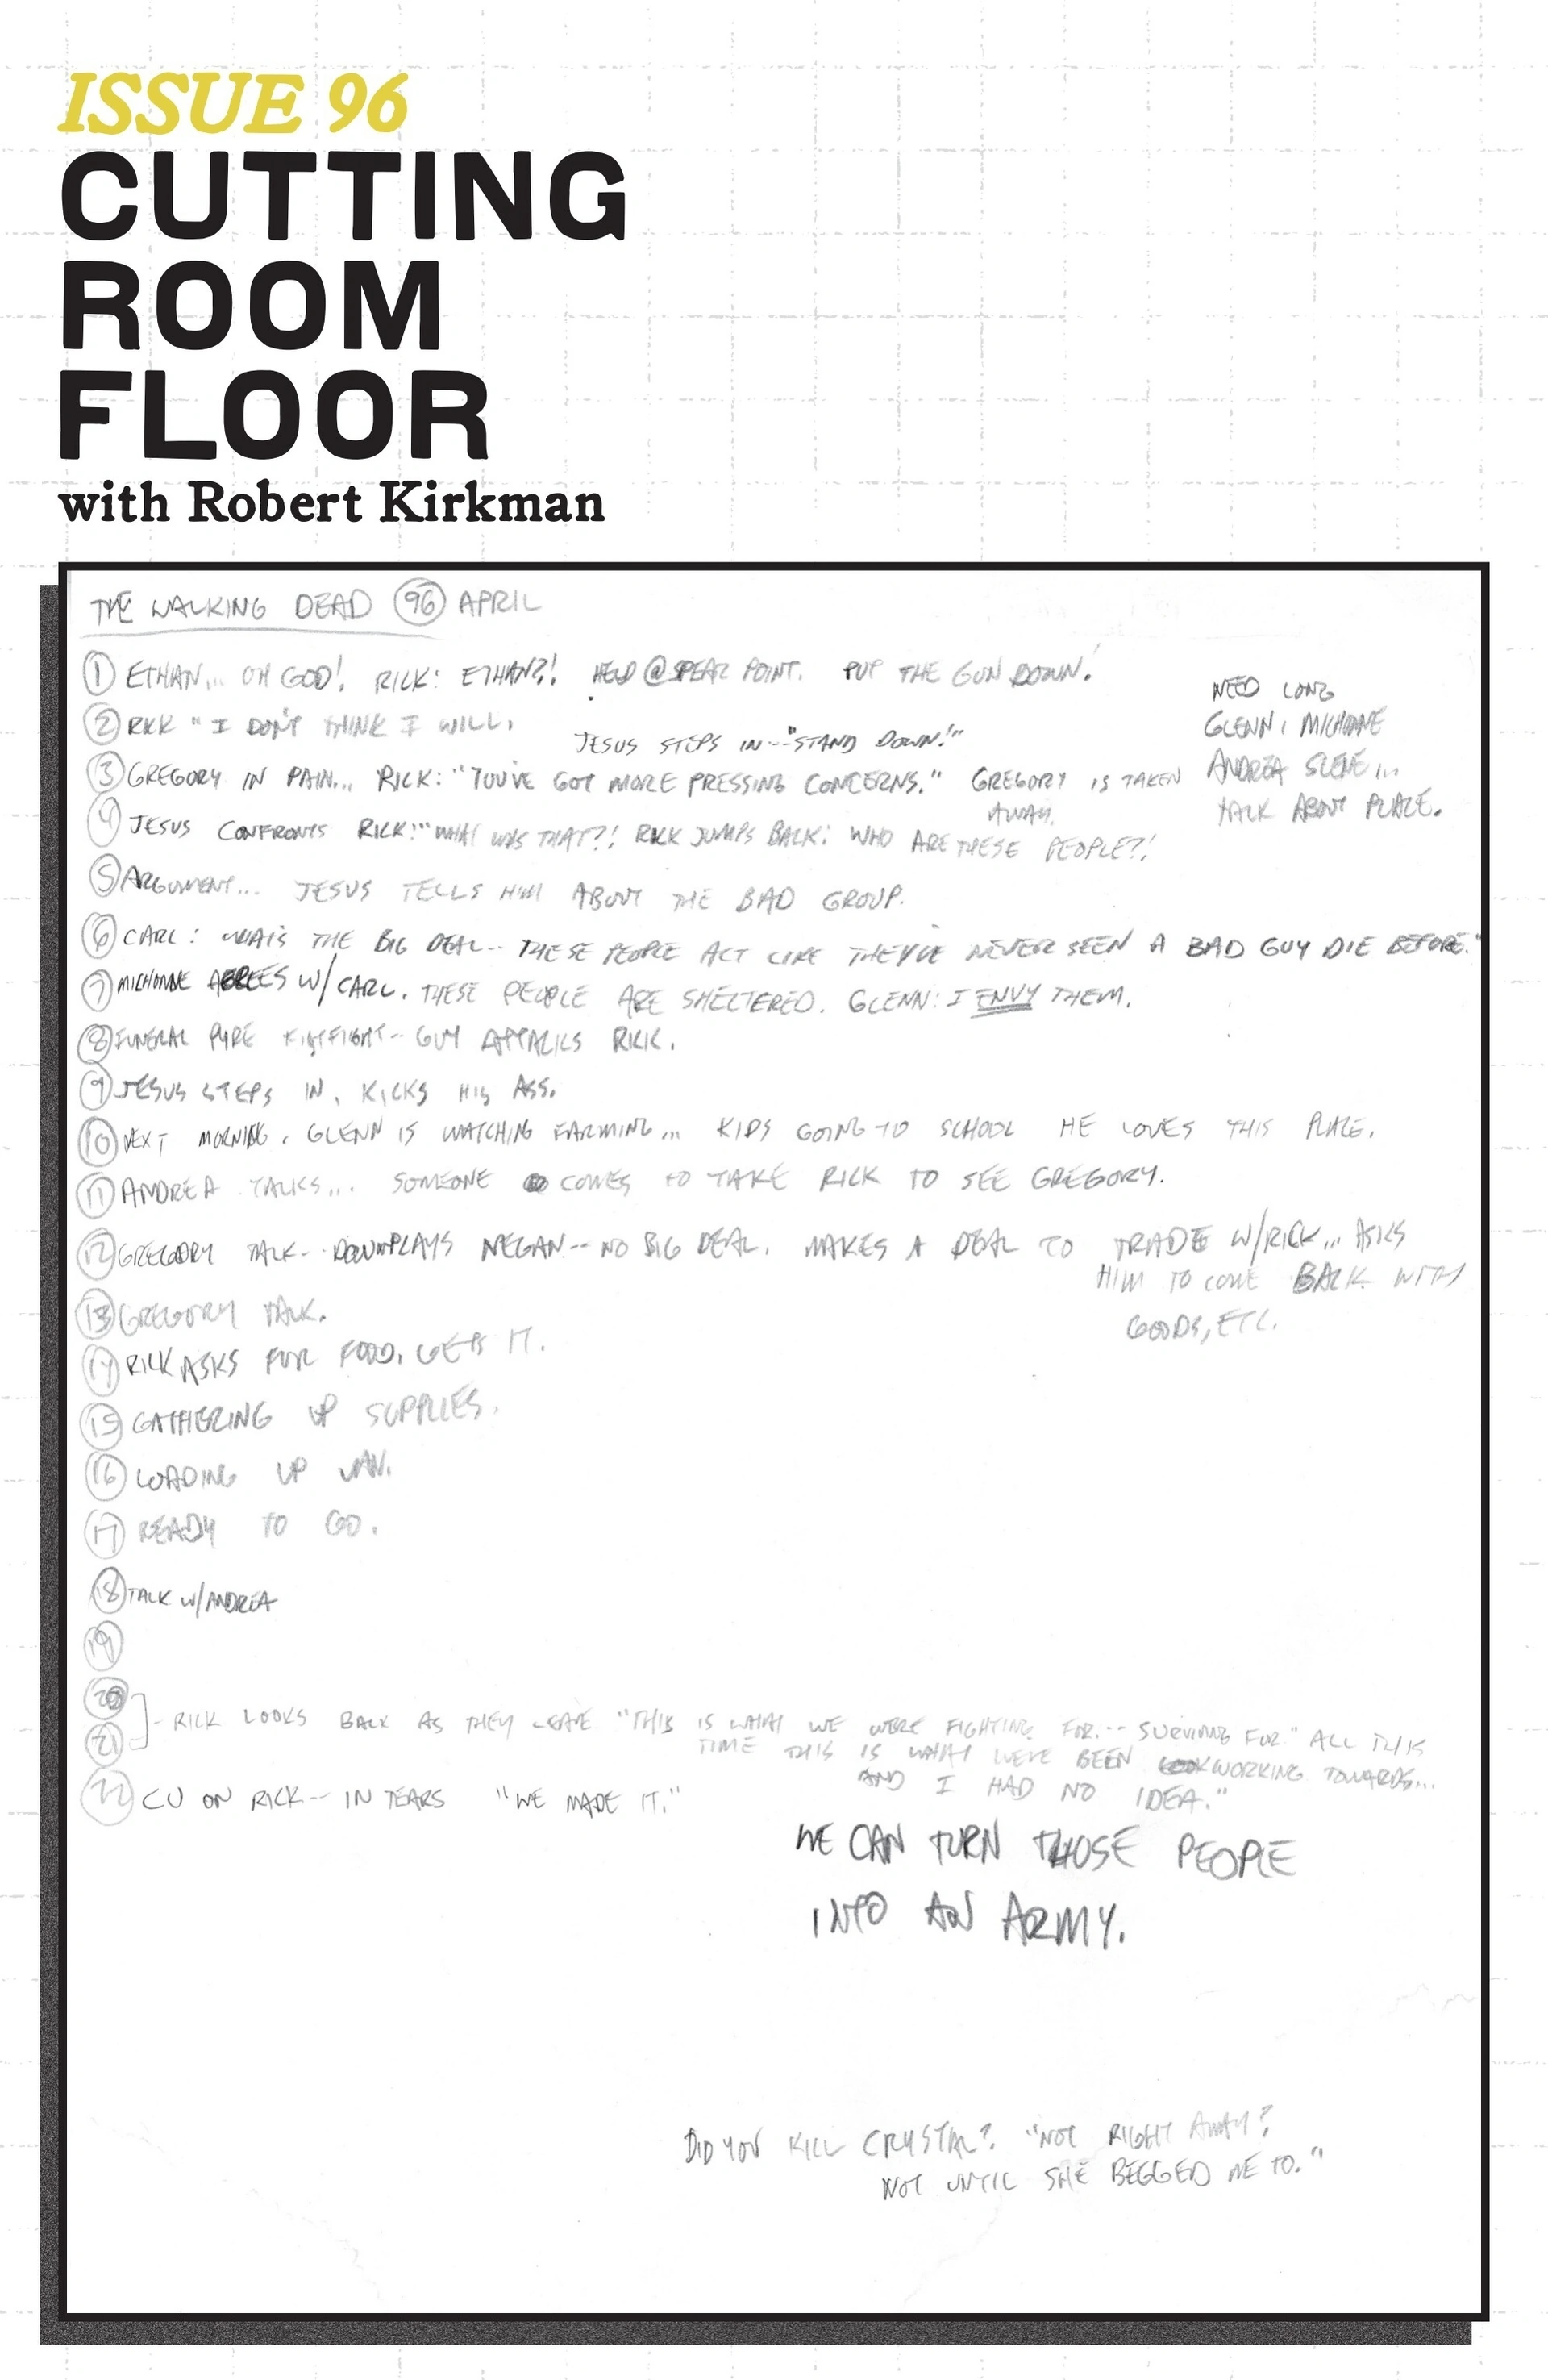 ISSUE 96
CUTTING
ROOM
FLOOR
with Robert Kirkman
THE WALKING DEAD 96 APRIL
1 ETHAN... OH GOD! RICK: ETHAN?! HELD @ SPEAR POINT. PUT THE GUN DOWN!
2 RICK "I DON'T THINK I WILL.
JESUS STEPS IN--"STAND DOWN!"
3 GREGORY IN PAIN... RICK: "YOU'VE GOT MORE PRESSING CONCERNS." GREGORY IS TAKEN
AWAY.
NEED LONG
GLENN, MICHONNE
ANDREA SCENE...
TALK ABOUT PLACE.
4 JESUS CONFRONTS RICK: "WHAT WAS THAT?! RICK JUMPS BACK: WHO ARE THESE PEOPLE?!
5 ARGUMENT... JESUS TELLS HIM ABOUT THE BAD GROUP.
6 CARL: WHAT'S THE BIG DEAL-- THESE PEOPLE ACT LIKE THEY'VE NEVER SEEN A BAD GUY DIE BEFORE."
7 MICHONNE AGREES W/ CARL. THESE PEOPLE ARE SHELTERED. GLENN: I ENVY THEM.
8 FUNERAL PYRE FISTFIGHT-- GUY ATTACKS RICK.
9 JESUS STEPS IN, KICKS HIS ASS.
10 NEXT MORNING. GLENN IS WATCHING FARMING... KIDS GOING TO SCHOOL HE LOVES THIS PLACE.
11 ANDREA TALKS... SOMEONE COMES TO TAKE RICK TO SEE GREGORY.
12 GREGORY TALK-- DOWNPLAYS NEGAN-- NO BIG DEAL. MAKES A DEAL TO TRADE W/RICK... ASKS
HIM TO COME BACK WITH
GOODS, ETC.
13 GREGORY TALK.
14 RICK ASKS FOR FOOD. GETS IT.
15 GATHERING UP SUPPLIES.
16 LOADING UP VAN.
17 READY TO GO.
18 TALK W/ANDREA
19
20
21 - RICK LOOKS BACK AS THEY LEAVE "THIS IS WHAT WE WERE FIGHTING FOR.-- SURVIVING FOR." ALL THIS
TIME THIS IS WHAT WE'VE BEEN WORKING TOWARDS...
AND I HAD NO IDEA."
22 CU ON RICK-- IN TEARS "WE MADE IT."
WE CAN TURN THOSE PEOPLE
INTO AN ARMY.
DID YOU KILL CRYSTAL? "NOT RIGHT AWAY?
NOT UNTIL SHE BEGGED ME TO."